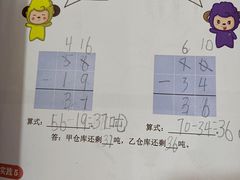 4 16 6 10
5 6 7 0
- 1 9 - 3 4
3 7 3 6
算式:56-19=37(吨) 算式:70-34=36
答:甲仓库还剩37吨,乙仓库还剩36吨。
实践5